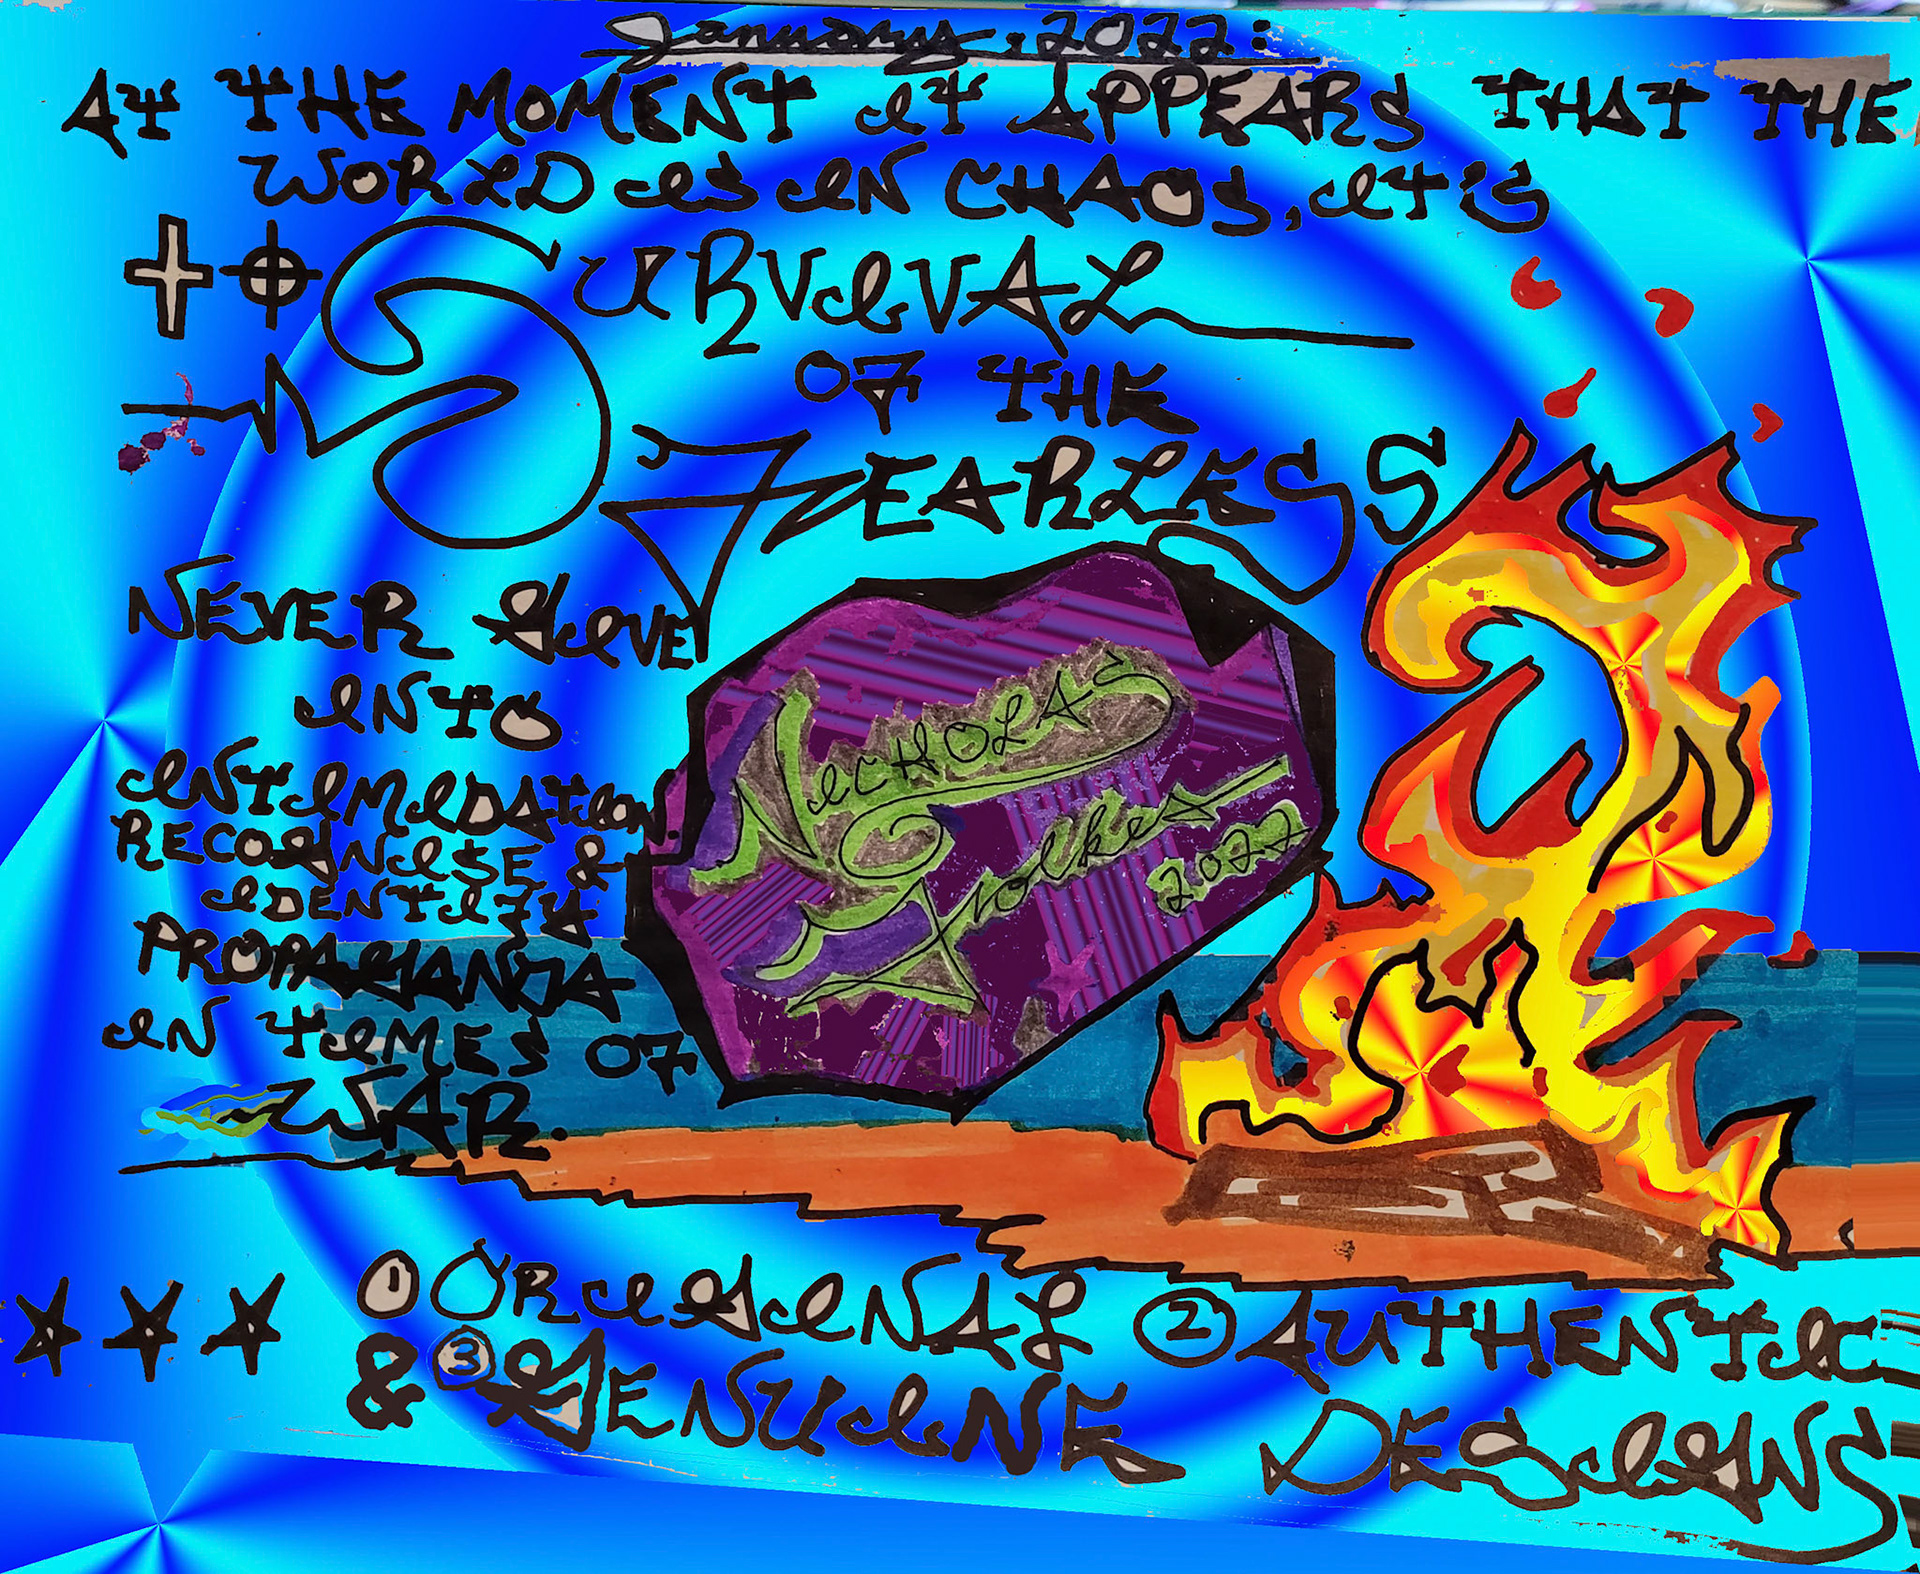 January, 2022:
AT THE MOMENT IT APPEARS THAT THE
WORLD IS IN CHAOS, IT IS
SURVIVAL
OF THE
FEARLESS
NEVER GIVE
INTO
INTIMIDATION.
RECOGNISE &
IDENTIFY
PROPAGANDA
IN TIMES OF
WAR.
NICHOLAS
2022
① ORIGINAL ② AUTHENTIC
& ③ GENUINE DESIGNS